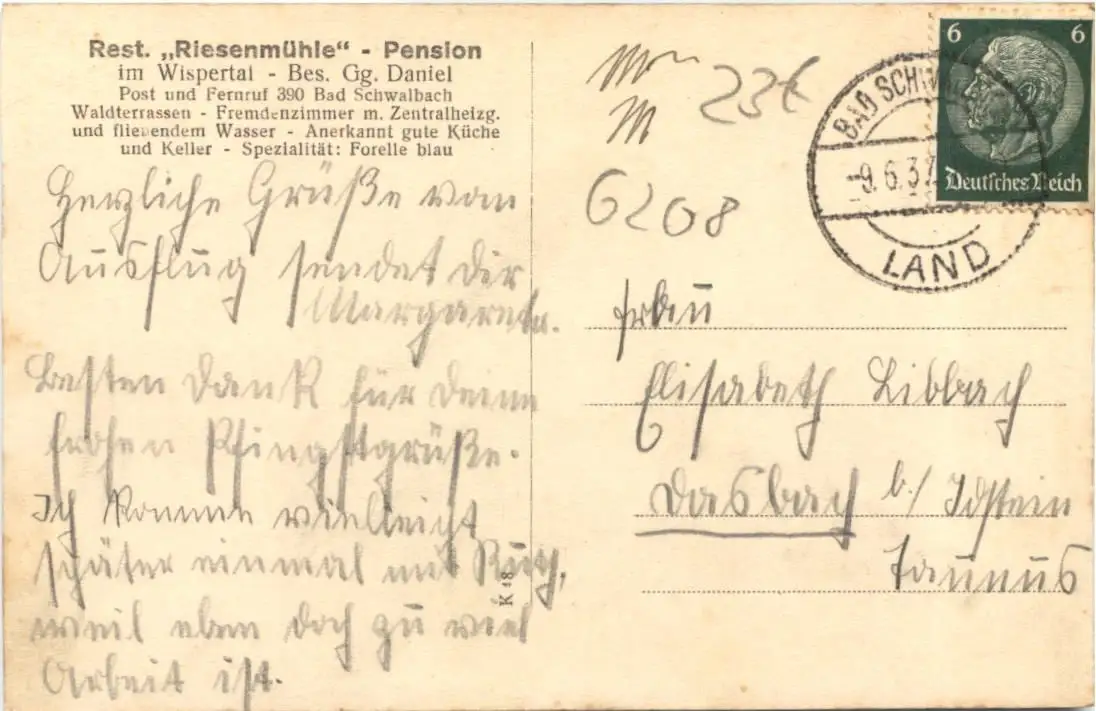 Rest. „Riesenmühle“ - Pension
im Wispertal - Bes. Gg. Daniel
Post und Fernruf 390 Bad Schwalbach
Waldterrassen - Fremdenzimmer m. Zentralheizg.
und fließendem Wasser - Anerkannt gute Küche
und Keller - Spezialität: Forelle blau
Herzliche Grüße vom
Ausflug sendet Dir
Margarete.
Besten Dank für Deine
frohen Pfingstgrüße.
Ich komme vielleicht
später einmal mit Ruth,
weil eben doch zu viel
Arbeit ist.
K 48
23€
6208
BAD SCHWAL
-9.6.37
LAND
6 6
Deutsches Reich
Frau
Elisabeth Libbach
Dasbach b/ Idstein
Taunus